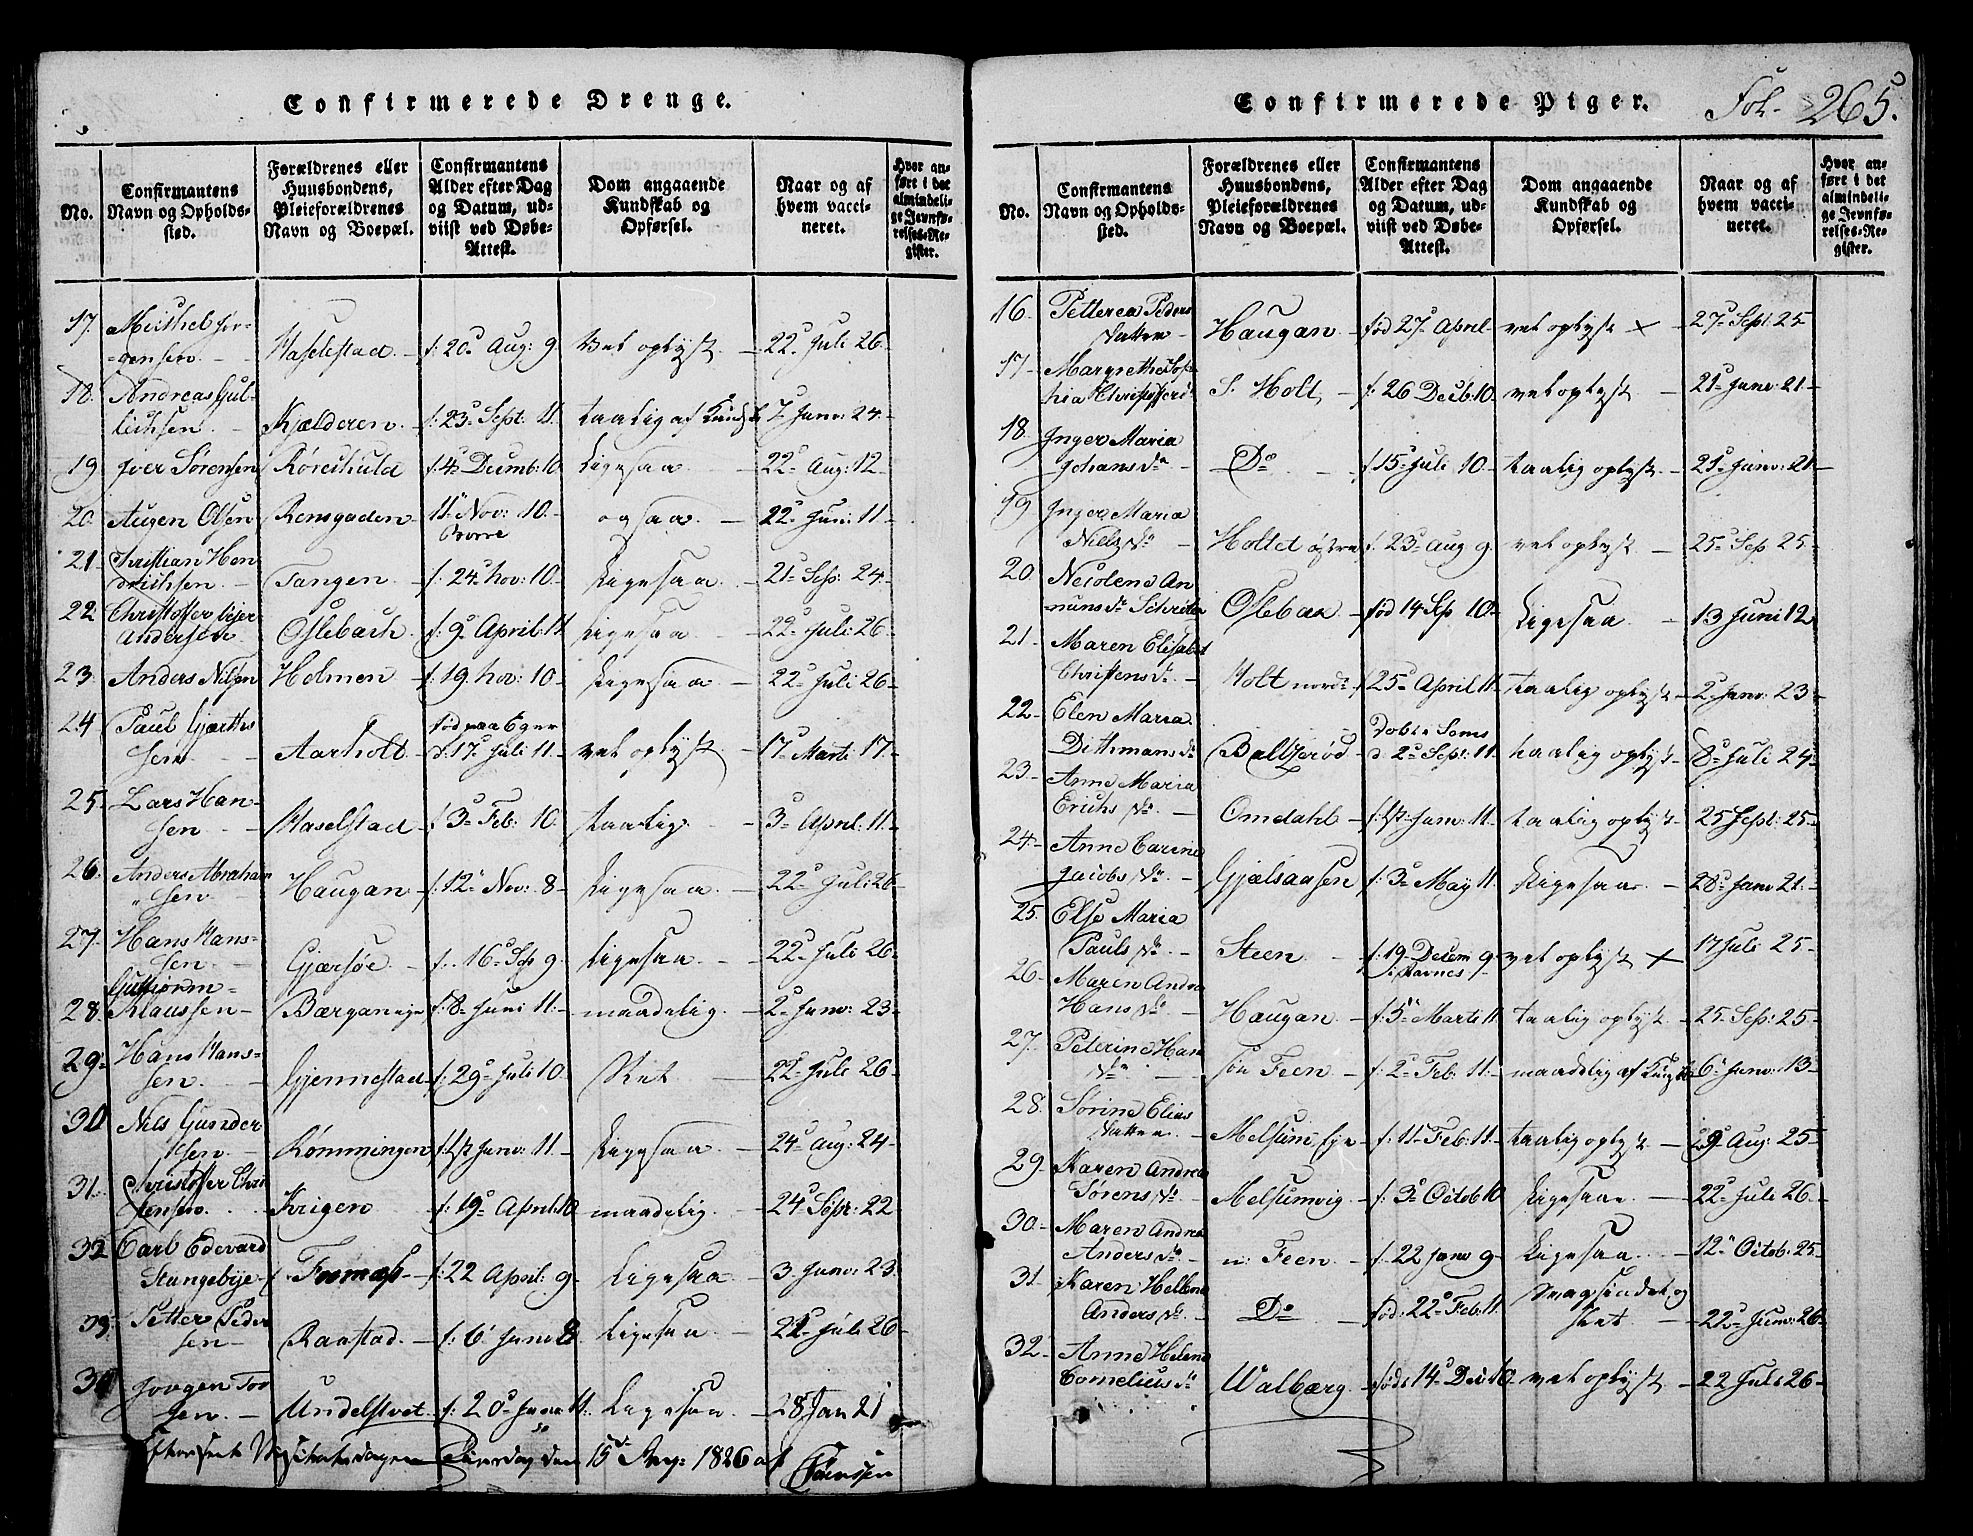 Confirmerede Drenge.
No.
Confirmantens Navn og Opholds-sted.
Forældrenes eller Huusbondens, Pleieforældrenes Navn og Boepæl.
Confirmantens Alder efter Dag og Datum, ud-viist ved Døbe-Attest.
Dom angaaende Kundskab og Opførsel.
Naar og af hvem vacci-neret.
Hvor an-ført i det almindeli-ge Jevnfø-relses-Re-gister.
17. Michel Jør-
gensen - Haselstad - f: 20 Aug: 9 Vel oplyst - 22 Juli 26
18. Andreas Gul-
lichsen - Kjælderen - f: 23 Sept: 11 taalig af Kundsk 7 Janv: 24
19 Iver Sørensen Røreskuld f: 4 Decemb: 10 Ligesaa - 22 Aug: 12
20. Augen Olsen Rensgaden 11 Nov: 10 ogsaa - 22 Juni: 11
Borre
21 Christian Hen
drichsen - Tangen - f: 24 Nov: 10 Ligesaa - 21 Sep: 24
22 Christoffer
Andersen Oslebach - f: 9 April: 11 Ligesaa - 22 Juli: 26
23. Anders Nilsen Holmen - f: 19 Nov: 10 Ligesaa - 22 Juli 26
24 Paul Gjerths fød paa Eger
sen - Aarholt - d: 17 Juli 11 vel oplyst - 17 Marti 17
25. Lars Han-
sen - Haselstad - f: 3 Feb: 10 taalig - 3 April: 11
26. Anders Abraham
sen - Haugan - f: 12 Nov: 8 Ligesaa - 22 Juli 26
27. Hans Hans-
sen - Gjersøe - f: 16 Sep 9 Ligesaa - 22 Juli 26
Guttorm
28 Klaussen - Bærgan f: 8 Juni 11 maadelig - 2 Janv: 23
29 Hans Hans-
sen - Gjennestad f: 29 Juli 10 Vel - 22 Juli 26
30 Nils Gunder
sen - Rømmingen f: 1st Janv: 11 Ligesaa - 24 Aug: 24
31 Christoffer Chri
stensen - Krigen f: 19 April: 10 maadelig - 24 Sept: 22
32 Carl Edevard
Stangebye f: 22 April: 9 Ligesaa - 3 Janv: 23
33. Petter Peder
sen - Raastad - f: 6 Janv 8 Ligesaa - 22 Juli 26
34 Jørgen Tor
sen - Undelstvet f: 20 Janv 11 Ligesaa - 28 Jan 21
15 Aug: 1826 af
Confirmerede Piger. Fol. 265.
No.
Confirmantens Navn og Opholds-sted.
Forældrenes eller Huusbondens, Pleieforældrenes Navn og Boepæl.
Confirmantens Alder efter Dag og Datum, ud-viist ved Døbe-Attest.
Dom angaaende Kundskab og Opførsel.
Naar og af hvem vacci-neret.
Hvor an-ført i det almindeli-ge Jevnfø-relses-Re-gister.
16 Petterea Peders
datter - Haugan - fød 27 April - vel oplyst × - 27 Sept 25
17 Margrethe Sop
hia Christofferd S. Holt - f: 26 Decb: 10 vel oplyst - 21 Janv: 21
18. Inger Maria
Johansd. Do - f 15 Juli 10 taalig oplyst - 21 Janv: 21
19 Inger Maria
Nielsd. - Holtet østre f: 23 Aug 9 vel oplyst - 25 Sep 25
20 Nicolene An
nunsd. Oslebak - fød 14 Sep 10 Ligesaa - 13 Juni 12
21 Maren Elisabet
Christensd. - Holt nord f: 25 April 11 taalig oplyst - 2 Janv: 23
22 Elen Maria Døbt i Sems
Dithmansd. Baltzerød d. 2 Sept: 11 taalig oplyst - 8 Juli 24
23. Anne Maria
Erichsd. - Omdahl f: 1st Janv: 11 taalig oplyst - 25 Sept: 25
24 Anne Carine
Jacobsd. - Gjælsaasen f: 3 May 11 Ligesaa - 28 Janv 21
25. Else Maria
Paulsd. - Steen - f: 19 Decem 9 vel oplyst × 17 Juli 25
i Ravnes
26 Maren Andrea
Hansd. - Haugan - f: 5 Marti 11 taalig oplyst - 25 Sep: 25
27. Peterine Han
sd. søn Feen - f: 2 Feb: 11 maadelig af Kundsk 6 Janv: 13
28. Sørine Elias
datter - Melsum Eje f: 11 Feb: 11 taalig oplyst - 29 Aug: 25
29 Karen Andrea
Sørensd. - Melsumvig - f: 3 Octob 10 Ligesaa - 22 Juli 26
30. Maren Andrea
Andersd. n: Feen - f: 22 Janv 9 Ligesaa - 12 Octob: 25
31 Karen Hellene
Andersd. - Do - fød: 22 Feb: 11 svagsindet og
slet - 22 Janv: 26
32 Anne Helene
Corneliusd. Walbærg - fød: 14 Dec 10 vel oplyst - 22 Juli 26